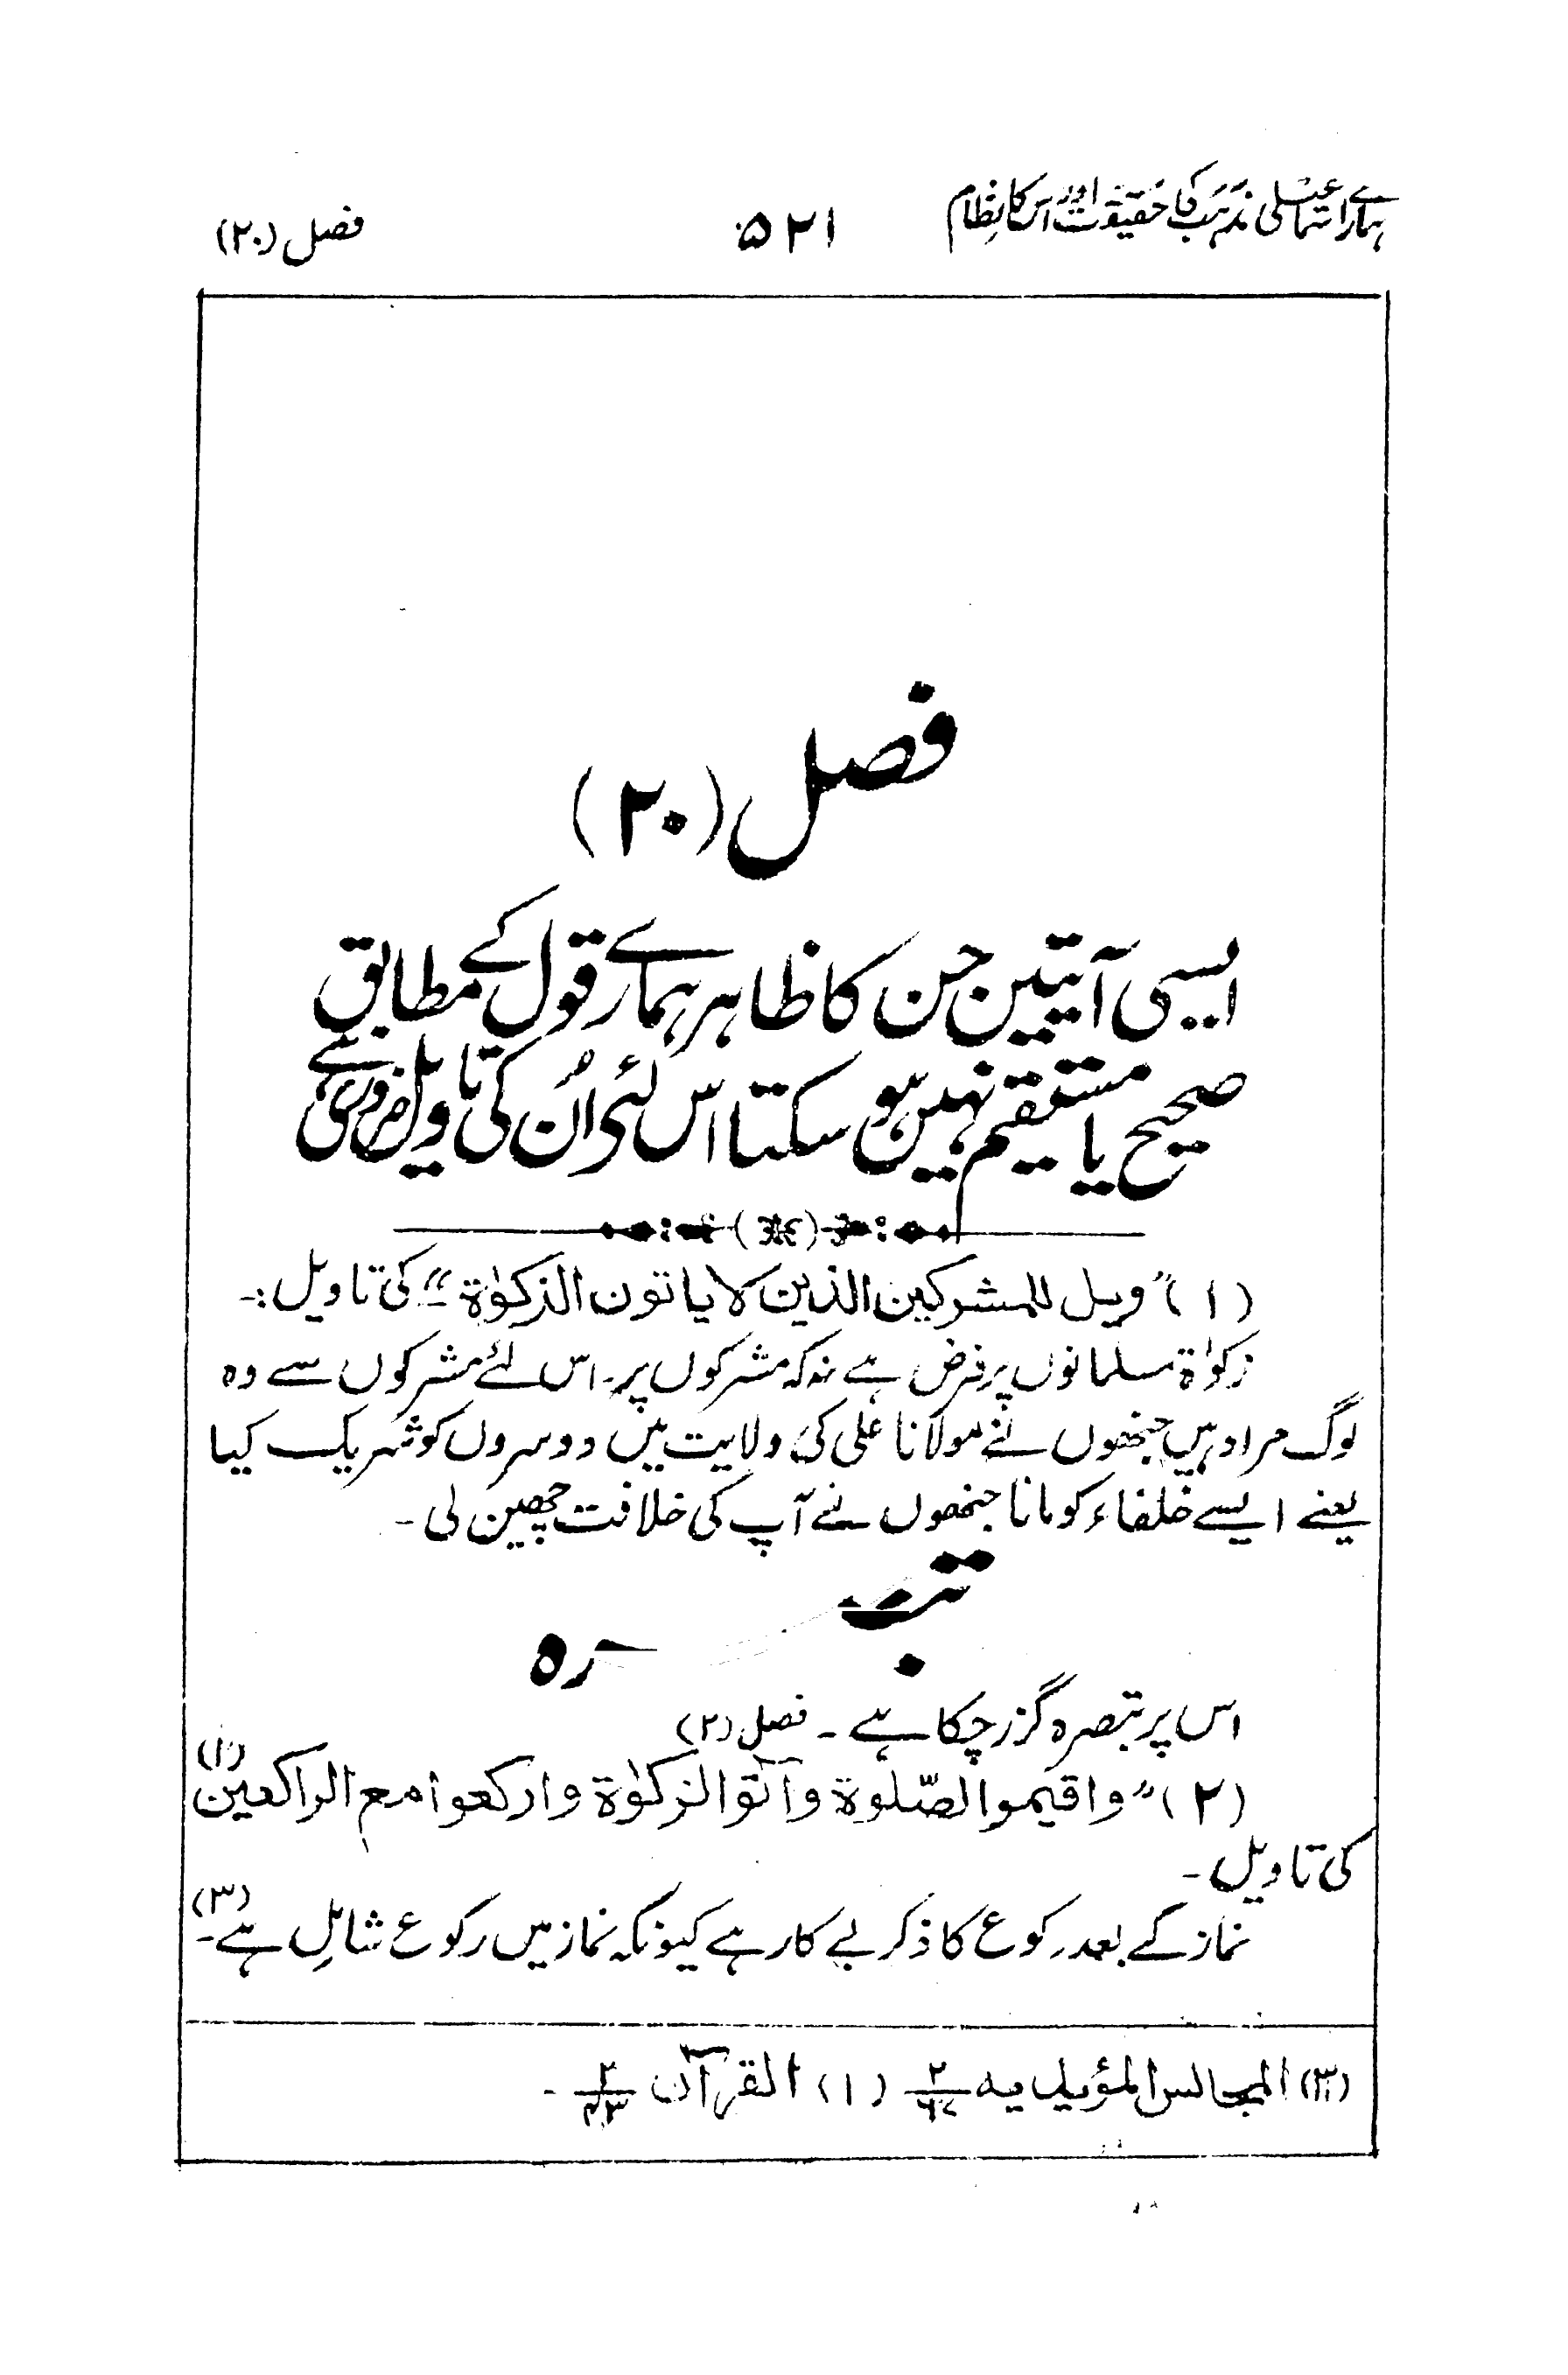 ہمارے اسماعیلی مذہب کی حقیقت اور اس کا نظام ۵۲۱ فصل (۲۰)
فصل (۲۰)
ایسی آیتیں جن کا ظاہر ہمارے قول کے مطابق
صحیح یا مستقیم نہیں ہو سکتا اس لئے اُن کی تاویل ضروری ہے
(۱) "ویل للمشرکین الذین لا یاتون الزکوٰۃ" کی تاویل:۔
زکوٰۃ مسلمانوں پر فرض ہے نہ کہ مشرکوں پر۔ اس لئے مشرکوں سے وہ
لوگ مراد ہیں جنھوں نے مولانا علی کی ولایت میں دوسروں کو شریک کیا
یعنے ایسے خلفاء کو مانا جنھوں نے آپ کی خلافت چھین لی۔
تبصرہ
اس پر تبصرہ گزر چکا ہے۔ فصل (۲)
(۲) "واقیموا الصّلوۃ وآتوا الزکوٰۃ وارکعوا مع الراکعین (۱)
کی تاویل۔
نماز کے بعد رکوع کا ذکر بے کار ہے کیونکہ نماز میں رکوع شامل ہے۔ (۳)
(۳) المجالس المؤیدیہ ۲ (۱) القرآن ۲/۴۳۔